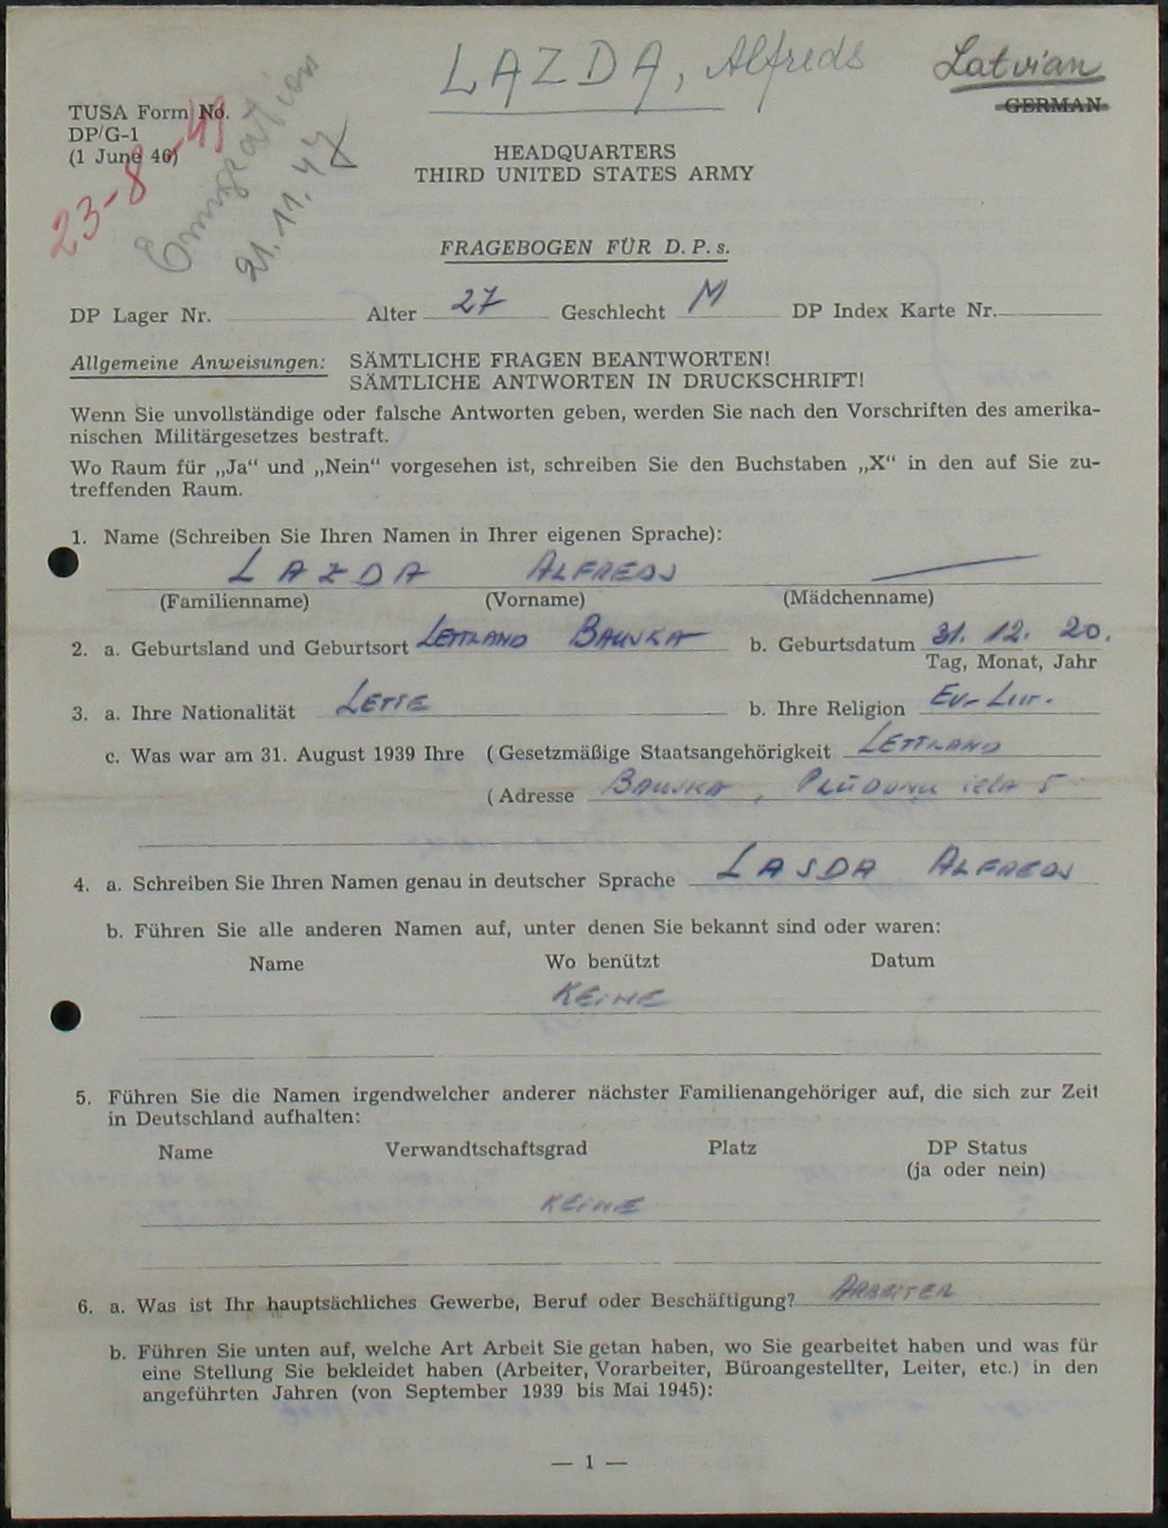 LAZDA, Alfreds
Latvian
GERMAN
TUSA Form No.
DP/G-1
(1 June 46)
23-8-49
Emigration
21.11.47
HEADQUARTERS
THIRD UNITED STATES ARMY
FRAGEBOGEN FÜR D. P. s.
DP Lager Nr. Alter 27 Geschlecht M DP Index Karte Nr.
Allgemeine Anweisungen: SÄMTLICHE FRAGEN BEANTWORTEN!
SÄMTLICHE ANTWORTEN IN DRUCKSCHRIFT!
Wenn Sie unvollständige oder falsche Antworten geben, werden Sie nach den Vorschriften des amerika-
nischen Militärgesetzes bestraft.
Wo Raum für „Ja“ und „Nein“ vorgesehen ist, schreiben Sie den Buchstaben „X“ in den auf Sie zu-
treffenden Raum.
1. Name (Schreiben Sie Ihren Namen in Ihrer eigenen Sprache):
LAZDA ALFREDS —
(Familienname) (Vorname) (Mädchenname)
2. a. Geburtsland und Geburtsort LETTLAND BAUSKA b. Geburtsdatum 31. 12. 20.
Tag, Monat, Jahr
3. a. Ihre Nationalität LETTE b. Ihre Religion EV-LUT.
c. Was war am 31. August 1939 Ihre ( Gesetzmäßige Staatsangehörigkeit LETTLAND
( Adresse BAUSKA, PLŪDOŅU IELA 5
4. a. Schreiben Sie Ihren Namen genau in deutscher Sprache LASDA ALFREDS
b. Führen Sie alle anderen Namen auf, unter denen Sie bekannt sind oder waren:
Name Wo benützt Datum
KEINE
5. Führen Sie die Namen irgendwelcher anderer nächster Familienangehöriger auf, die sich zur Zeit
in Deutschland aufhalten:
Name Verwandtschaftsgrad Platz DP Status
(ja oder nein)
KEINE
6. a. Was ist Ihr hauptsächliches Gewerbe, Beruf oder Beschäftigung? ARBEITER
b. Führen Sie unten auf, welche Art Arbeit Sie getan haben, wo Sie gearbeitet haben und was für
eine Stellung Sie bekleidet haben (Arbeiter, Vorarbeiter, Büroangestellter, Leiter, etc.) in den
angeführten Jahren (von September 1939 bis Mai 1945):
— 1 —